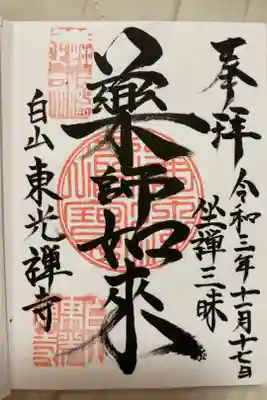 奉拝
令和三年十一月十七日
坐禅三昧
薬師如来
白山東光禅寺